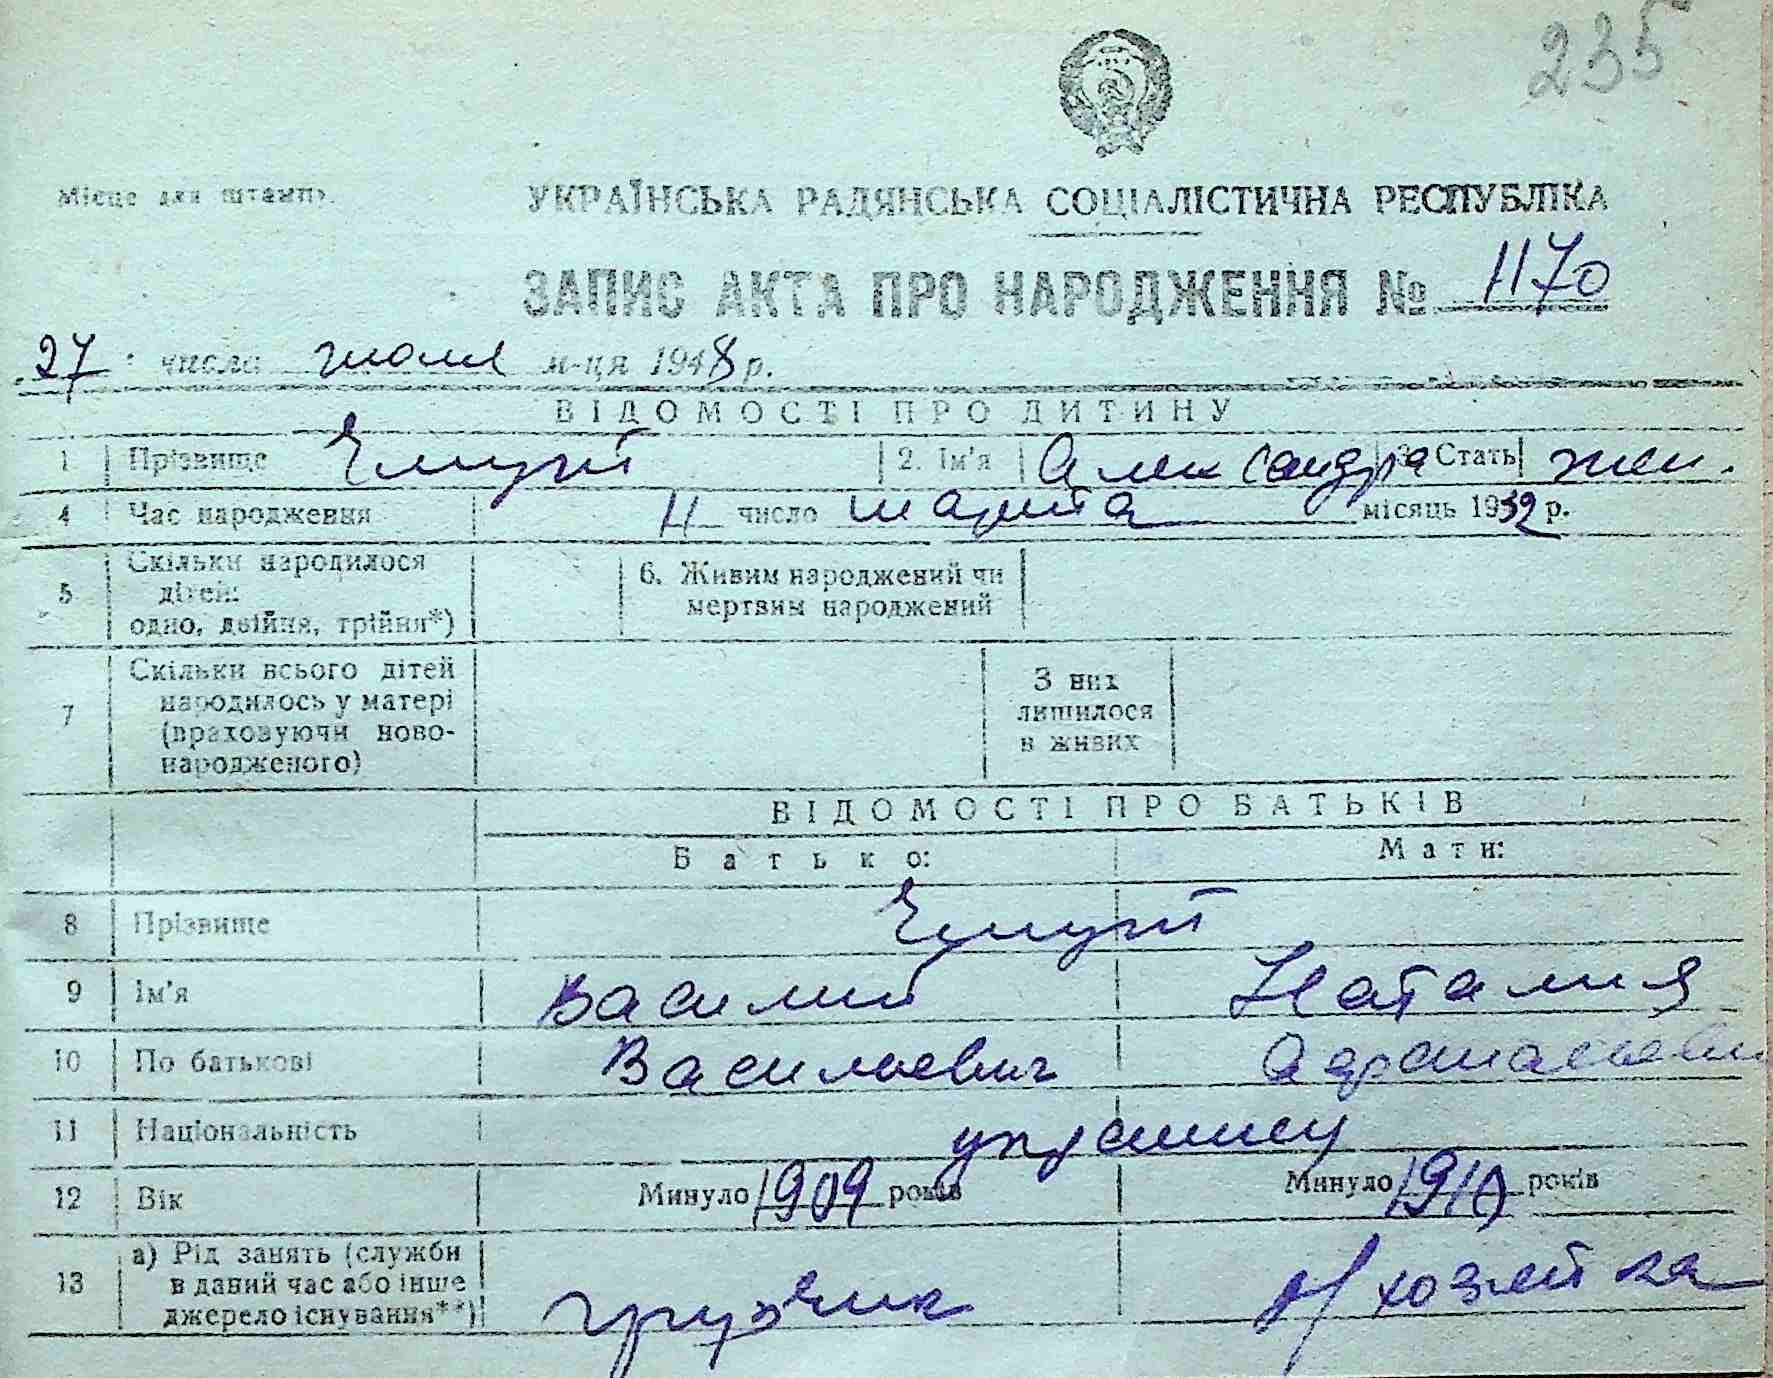 235
Місце для штампу.
УКРАЇНСЬКА РАДЯНСЬКА СОЦІАЛІСТИЧНА РЕСПУБЛІКА
ЗАПИС АКТА ПРО НАРОДЖЕННЯ № 1170
27 числа июля м-ця 1948 р.
ВІДОМОСТІ ПРО ДИТИНУ
1 Прізвище 2. Ім'я Александра 3. Стать жен.
4 Час народження 11 число марта місяць 1939 р.
5 Скільки народилося дітей: одно, двійня, трійня*) 6. Живим народжений чи мертвим народжений
7 Скільки всього дітей народилось у матері (враховуючи новонародженого) З них лишилося в живих
ВІДОМОСТІ ПРО БАТЬКІВ
Батько: Мати:
8 Прізвище
9 Ім'я Василий Наталия
10 По батькові Васильевич
11 Національність украинцы
12 Вік Минуло 1909 років Минуло 1910 років
13 а) Рід занять (служби в даний час або інше джерело існування**) грузчик д/хозяйка